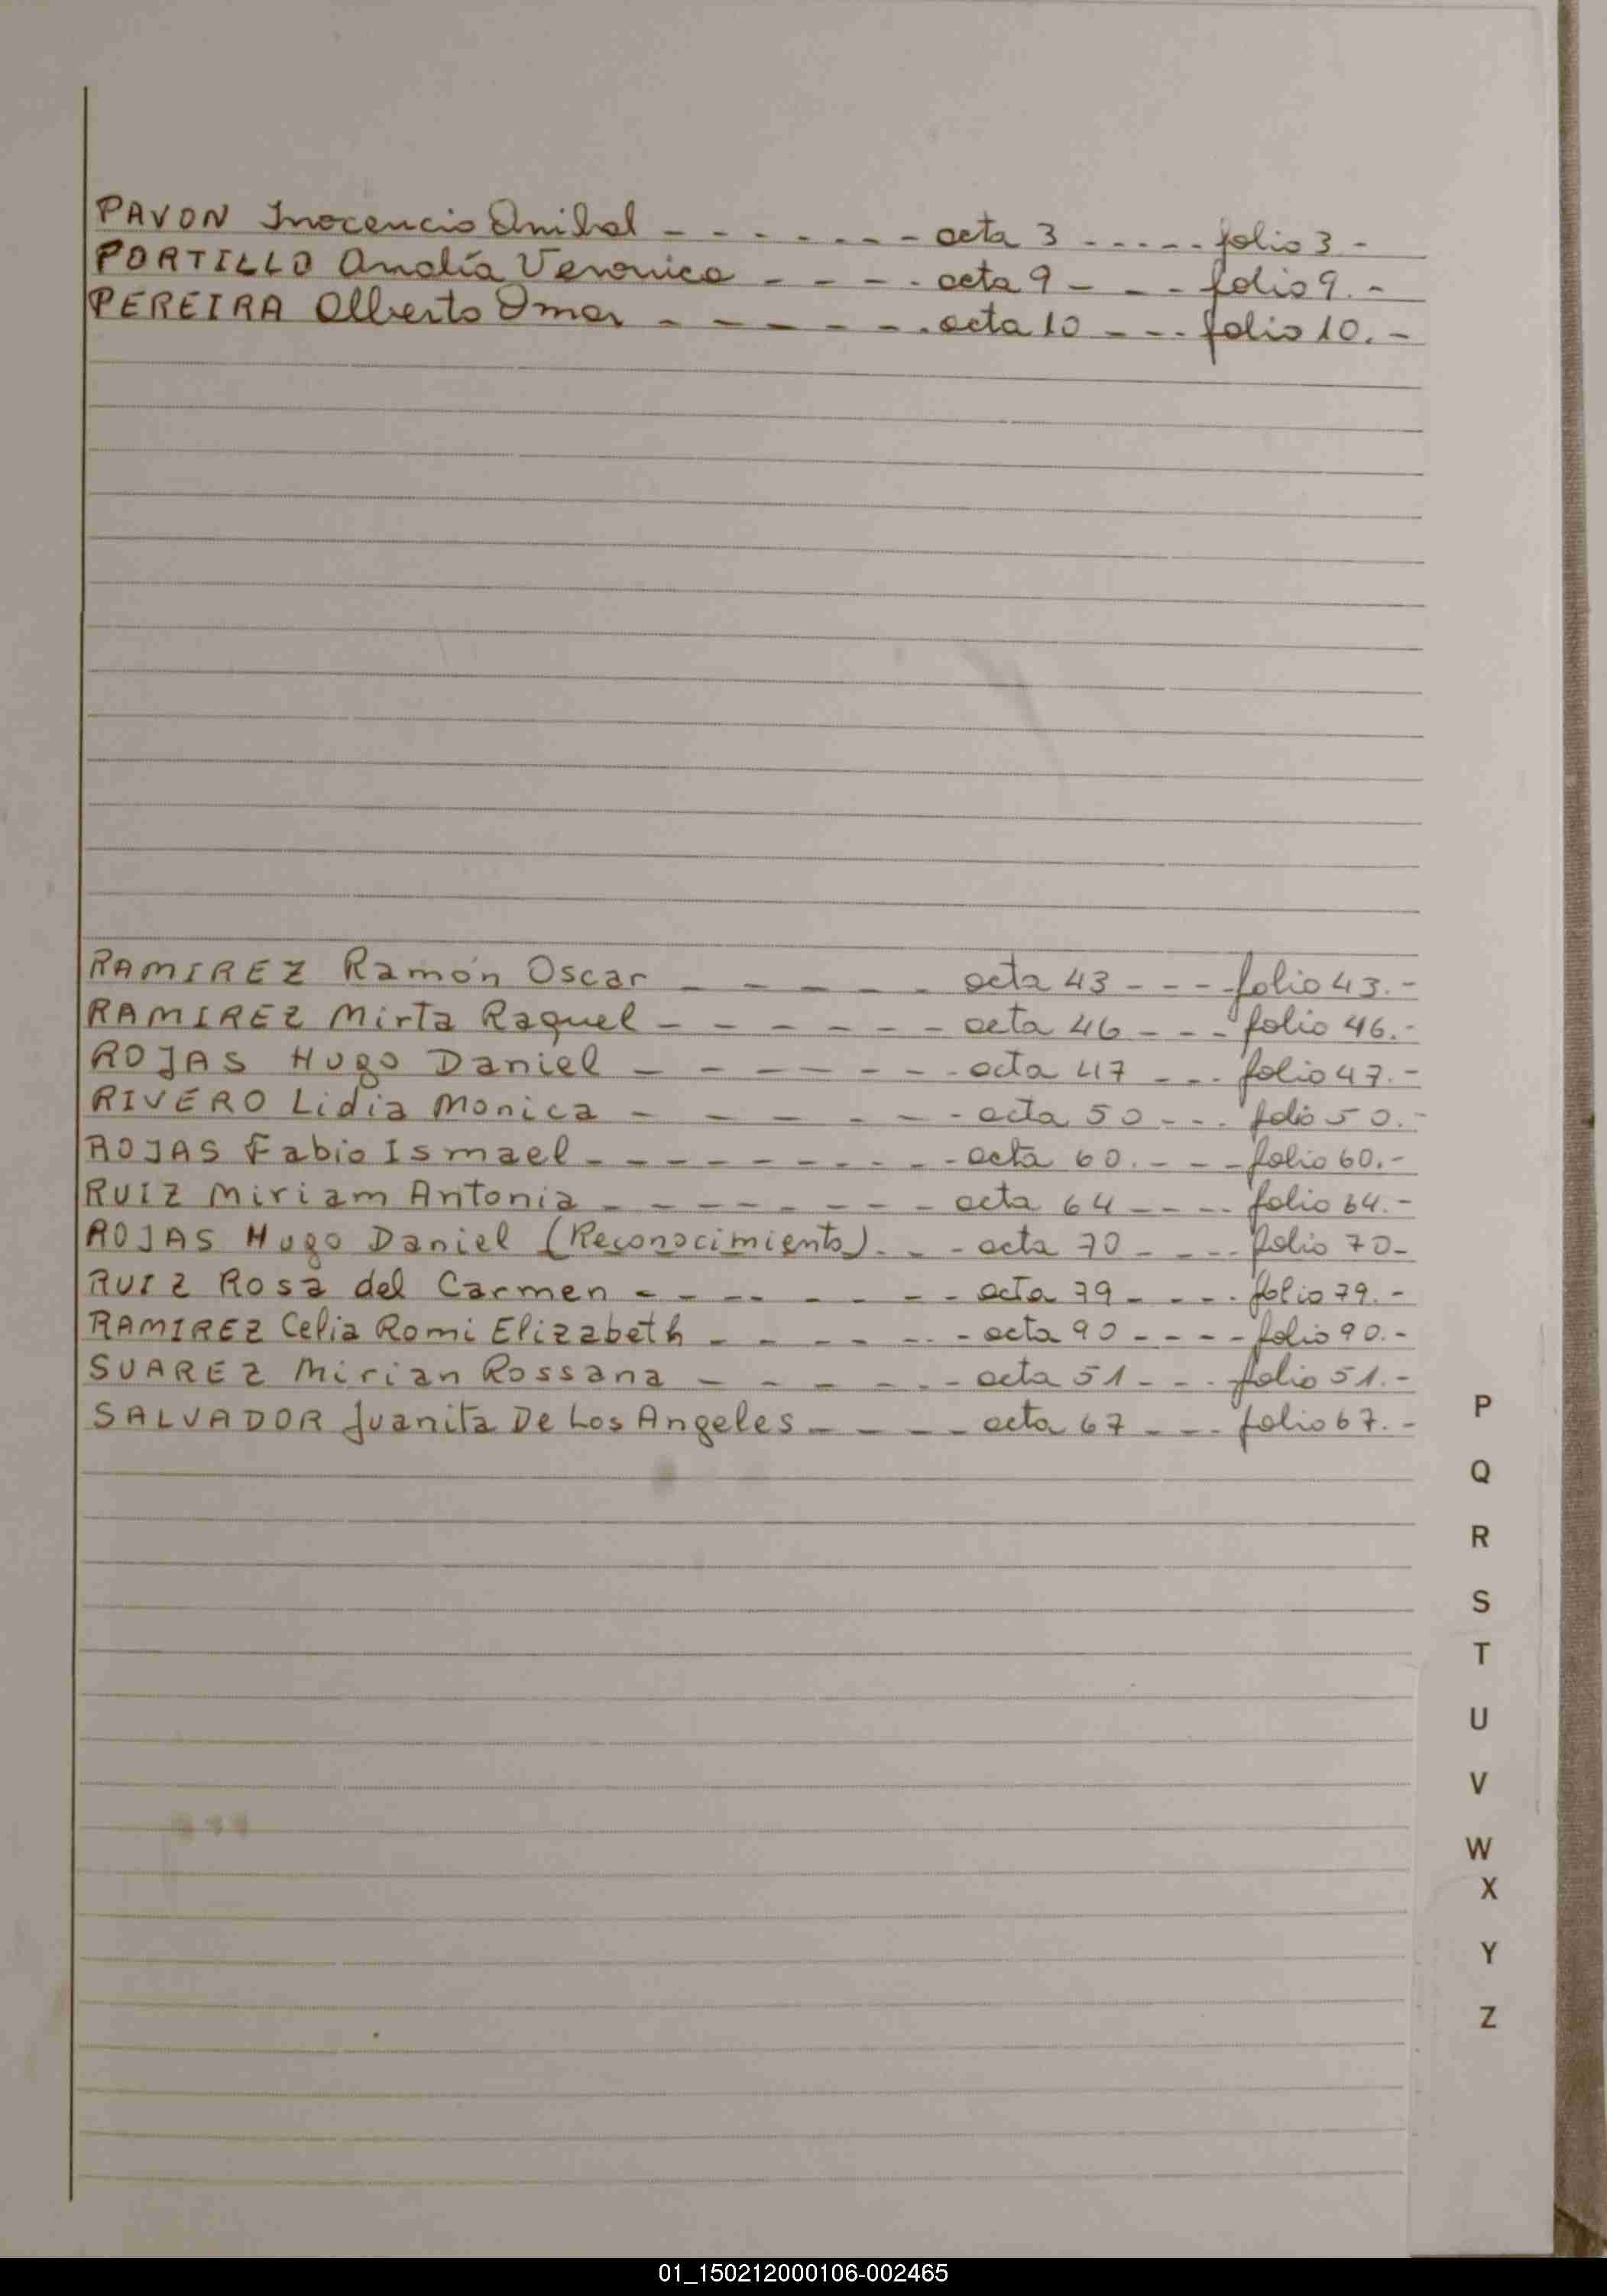 PAVON Inocencio Anibal - - - - - - - acta 3 - - - - - folio 3 -
PORTILLO Analía Veronica - - - - - acta 9 - - - folio 9. -
PEREIRA Alberto Omar - - - - - - . acta 10 - - - folio 10. -
RAMIREZ Ramón Oscar - - - - - acta 43 - - - folio 43. -
RAMIREZ Mirta Raquel - - - - - - - acta 46 - - - folio 46. -
ROJAS Hugo Daniel - - - - - - - - acta 47 - - - folio 47. -
RIVERO Lidia Monica - - - - - - - acta 50 - - - folio 50. -
ROJAS Fabio Ismael - - - - - - - - - - acta 60. - - - folio 60. -
RUIZ Miriam Antonia - - - - - - - - acta 64 - - - - folio 64. -
ROJAS Hugo Daniel (Reconocimiento). - - acta 70 - - - - folio 70 -
RUIZ Rosa del Carmen - - - - - - - - acta 79 - - - - folio 79. -
RAMIREZ Celia Romi Elizabeth - - - - - - - acta 90 - - - - folio 90. -
SUAREZ Mirian Rossana - - - - - - acta 51 - - - folio 51. -
SALVADOR Juanita De Los Angeles - - - - acta 67 - - - folio 67. -
P
Q
R
S
T
U
V
W
X
Y
Z
01_150212000106-002465